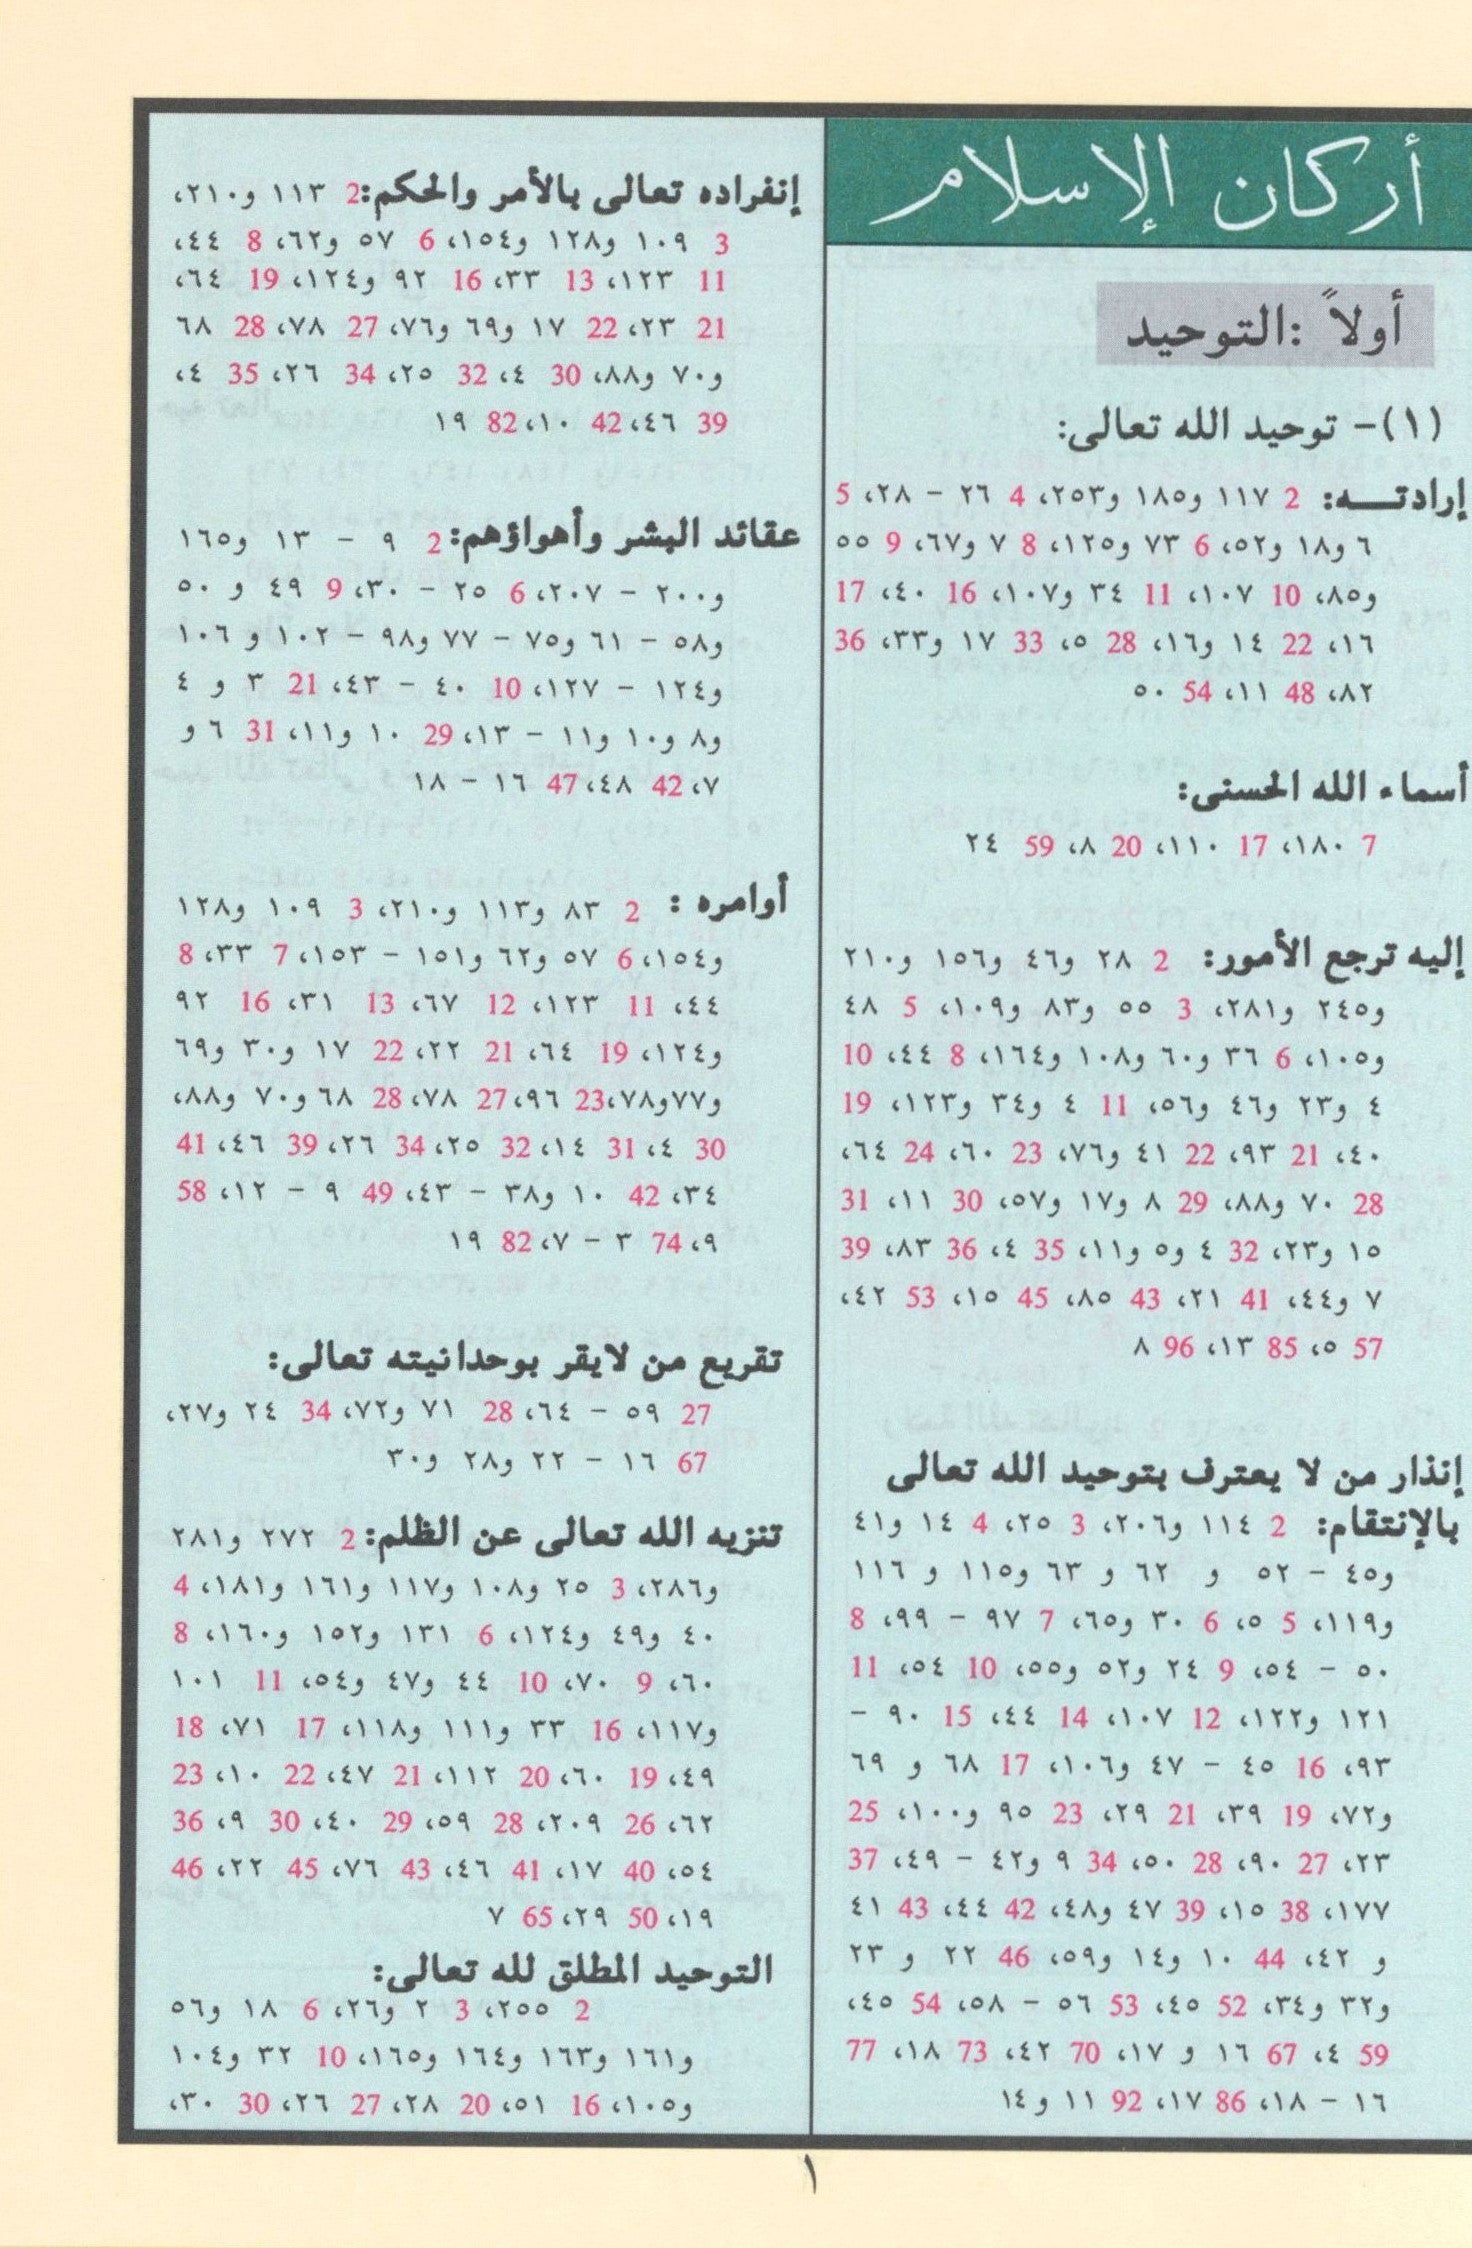 أركان الإسلام
أولاً :التوحيد
(١)- توحيد الله تعالى:
إرادتــه: 2 ١١٧ و١٨٥ و٢٥٣، 4 ٢٦ - ٢٨، 5
٦ و١٨ و٥٢، 6 ٧٣ و١٢٥، 8 ٧ و٦٧، 9 ٥٥
و٨٥، 10 ١٠٧، 11 ٣٤ و١٠٧، 16 ٤٠، 17
١٦، 22 ١٤ و١٦، 28 ٥، 33 ١٧ و٣٣، 36
٨٢، 48 ١١، 54 ٥٠
أسماء الله الحسنى:
7 ١٨٠، 17 ١١٠، 20 ٨، 59 ٢٤
إليه ترجع الأمور: 2 ٢٨ و٤٦ و١٥٦ و٢١٠
و٢٤٥ و٢٨١، 3 ٥٥ و٨٣ و١٠٩، 5 ٤٨
و١٠٥، 6 ٣٦ و٦٠ و١٠٨ و١٦٤، 8 ٤٤، 10
٤ و٢٣ و٤٦ و٥٦، 11 ٤ و٣٤ و١٢٣، 19
٤٠، 21 ٩٣، 22 ٤١ و٧٦، 23 ٦٠، 24 ٦٤،
28 ٧٠ و٨٨، 29 ٨ و١٧ و٥٧، 30 ١١، 31
١٥ و٢٣، 32 ٤ و٥ و١١، 35 ٤، 36 ٨٣، 39
٧ و٤٤، 41 ٢١، 43 ٨٥، 45 ١٥، 53 ٤٢،
57 ٥، 85 ١٣، 96 ٨
إنذار من لا يعترف بتوحيد الله تعالى
بالإنتقام: 2 ١١٤ و٢٠٦، 3 ٢٥، 4 ١٤ و٤١
و٤٥ - ٥٢ و ٦٢ و ٦٣ و١١٥ و ١١٦
و١١٩، 5 ٥، 6 ٣٠ و٦٥، 7 ٩٧ - ٩٩، 8
٥٠ - ٥٤، 9 ٢٤ و٥٢ و٥٥، 10 ٥٤، 11
١٢١ و١٢٢، 12 ١٠٧، 14 ٤٤، 15 ٩٠ -
٩٣، 16 ٤٥ - ٤٧ و١٠٦، 17 ٦٨ و ٦٩
و٧٢، 19 ٣٩، 21 ٢٩، 23 ٩٥ و١٠٠، 25
٢٣، 27 ٩٠، 28 ٥٠، 34 ٩ و٤٢ - ٤٩، 37
١٧٧، 38 ١٥، 39 ٤٧ و٤٨، 42 ٤٤، 43 ٤١
و ٤٢، 44 ١٠ و١٤ و٥٩، 46 ٢٢ و ٢٣
و٣٢ و٣٤، 52 ٤٥، 53 ٥٦ - ٥٨، 54 ٤٥،
59 ٤، 67 ١٦ و ١٧، 70 ٤٢، 73 ١٨، 77
١٦ - ١٨، 86 ١٧، 92 ١١ و١٤
إنفراده تعالى بالأمر والحكم:2 ١١٣ و٢١٠،
3 ١٠٩ و١٢٨ و١٥٤، 6 ٥٧ و٦٢، 8 ٤٤،
11 ١٢٣، 13 ٣٣، 16 ٩٢ و١٢٤، 19 ٦٤،
21 ٢٣، 22 ١٧ و٦٩ و٧٦، 27 ٧٨، 28 ٦٨
و٧٠ و٨٨، 30 ٤، 32 ٢٥، 34 ٢٦، 35 ٤،
39 ٤٦، 42 ١٠، 82 ١٩
عقائد البشر وأهواؤهم:2 ٩ - ١٣ و١٦٥
و٢٠٠ - ٢٠٧، 6 ٢٥ - ٣٠، 9 ٤٩ و ٥٠
و٥٨ - ٦١ و٧٥ - ٧٧ و٩٨ - ١٠٢ و ١٠٦
و١٢٤ - ١٢٧، 10 ٤٠ - ٤٣، 21 ٣ و ٤
و٨ و١٠ و١١ - ١٣، 29 ١٠ و١١، 31 ٦ و
٧، 42 ٤٨، 47 ١٦ - ١٨
أوامره : 2 ٨٣ و١١٣ و٢١٠، 3 ١٠٩ و١٢٨
و١٥٤، 6 ٥٧ و٦٢ و١٥١ - ١٥٣، 7 ٣٣، 8
٤٤، 11 ١٢٣، 12 ٦٧، 13 ٣١، 16 ٩٢
و١٢٤، 19 ٦٤، 21 ٢٢، 22 ١٧ و٣٠ و٦٩
و٧٧ و٧٨، 23 ٩٦، 27 ٧٨، 28 ٦٨ و٧٠ و٨٨،
30 ٤، 31 ١٤، 32 ٢٥، 34 ٢٦، 39 ٤٦، 41
٣٤، 42 ١٠ و٣٨ - ٤٣، 49 ٩ - ١٢، 58
٩، 74 ٣ - ٧، 82 ١٩
تقريع من لايقر بوحدانيته تعالى:
27 ٥٩ - ٦٤، 28 ٧١ و٧٢، 34 ٢٤ و٢٧،
67 ١٦ - ٢٢ و٢٨ و٣٠
تنزيه الله تعالى عن الظلم: 2 ٢٧٢ و٢٨١
و٢٨٦، 3 ٢٥ و١٠٨ و١١٧ و١٦١ و١٨١، 4
٤٠ و٤٩ و١٢٤، 6 ١٣١ و١٥٢ و١٦٠، 8
٦٠، 9 ٧٠، 10 ٤٤ و٤٧ و٥٤، 11 ١٠١
و١١٧، 16 ٣٣ و١١١ و١١٨، 17 ٧١، 18
٤٩، 19 ٦٠، 20 ١١٢، 21 ٤٧، 22 ١٠، 23
٦٢، 26 ٢٠٩، 28 ٥٩، 29 ٤٠، 30 ٩، 36
٥٤، 40 ١٧، 41 ٤٦، 43 ٧٦، 45 ٢٢، 46
١٩، 50 ٢٩، 65 ٧
التوحيد المطلق لله تعالى:
2 ٢٥٥، 3 ٢ و٢٦، 6 ١٨ و٥٦
و١٦١ و١٦٣ و١٦٤ و١٦٥، 10 ٣٢ و١٠٤
و١٠٥، 16 ٥١، 20 ٢٨، 27 ٢٦، 30 ٣٠،
١